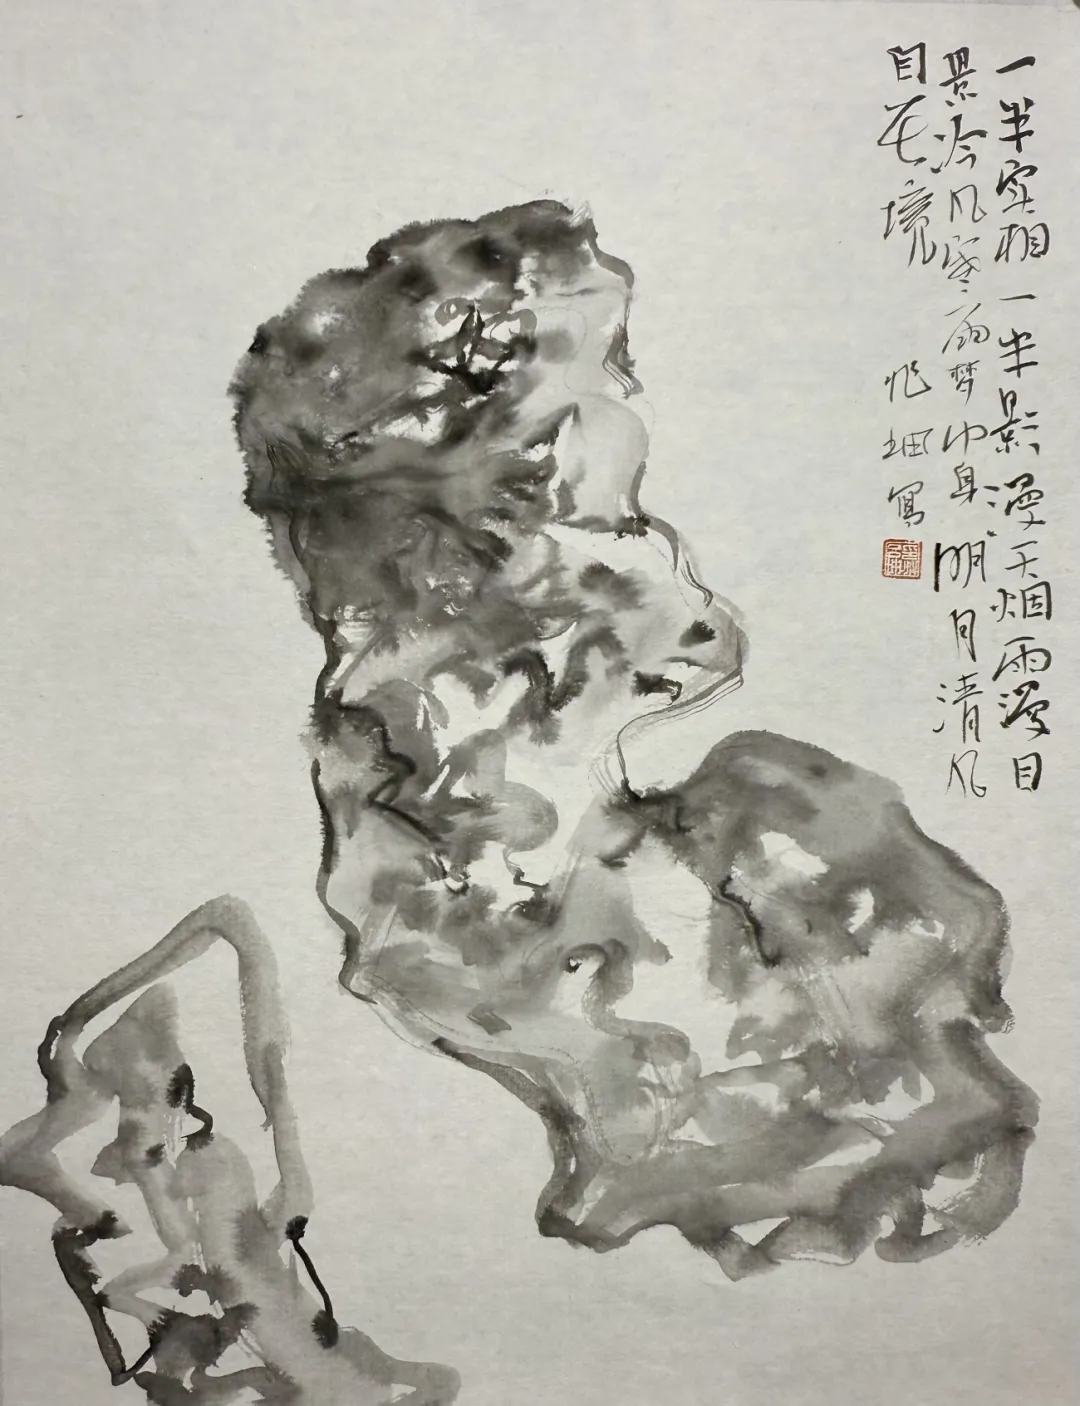 一半实相一半影漫天烟雨漫目
景冷风寒雨梦中身明月清风
自在境
写